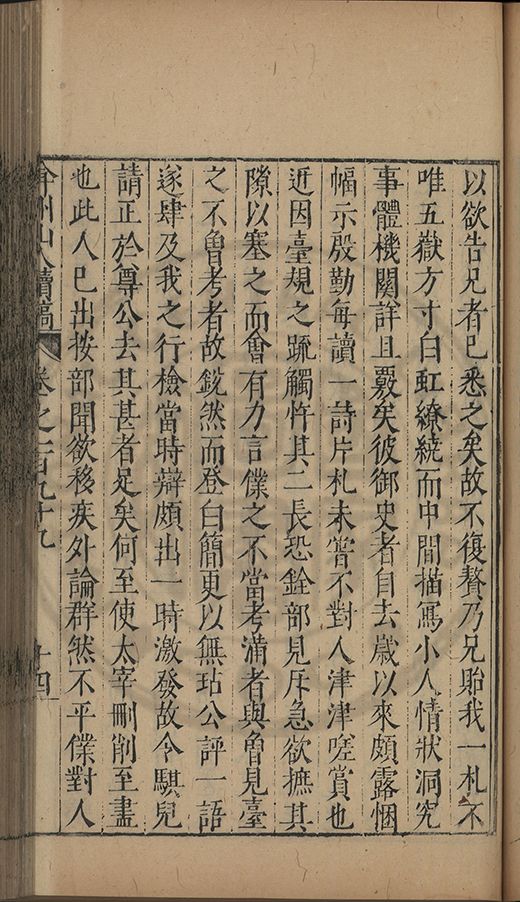 以欲告兄者已悉之矣故不復贅乃兄貽我一札不
唯五嶽方寸白虹繚繞而中間描寫小人情狀洞究
事體機關詳且覈矣彼御史者自去歲以來頗露悃
幅示殷勤每讀一詩片札未嘗不對人津津嗟賞也
近因臺規之疏觸忤其二長恐銓部見斥急欲摭其
隙以塞之而會有力言僕之不當考滿者與曾見臺
之不曾考者故銳然而登白簡更以無玷公評一語
遂肆及我之行檢當時辯頗出一時激發故令騏兒
請正於尊公去其甚者足矣何至使太宰刪削至盡
也此人已出按部聞欲移疾外論群然不平僕對人
弇州山人續稿 卷之一百九十九 十四